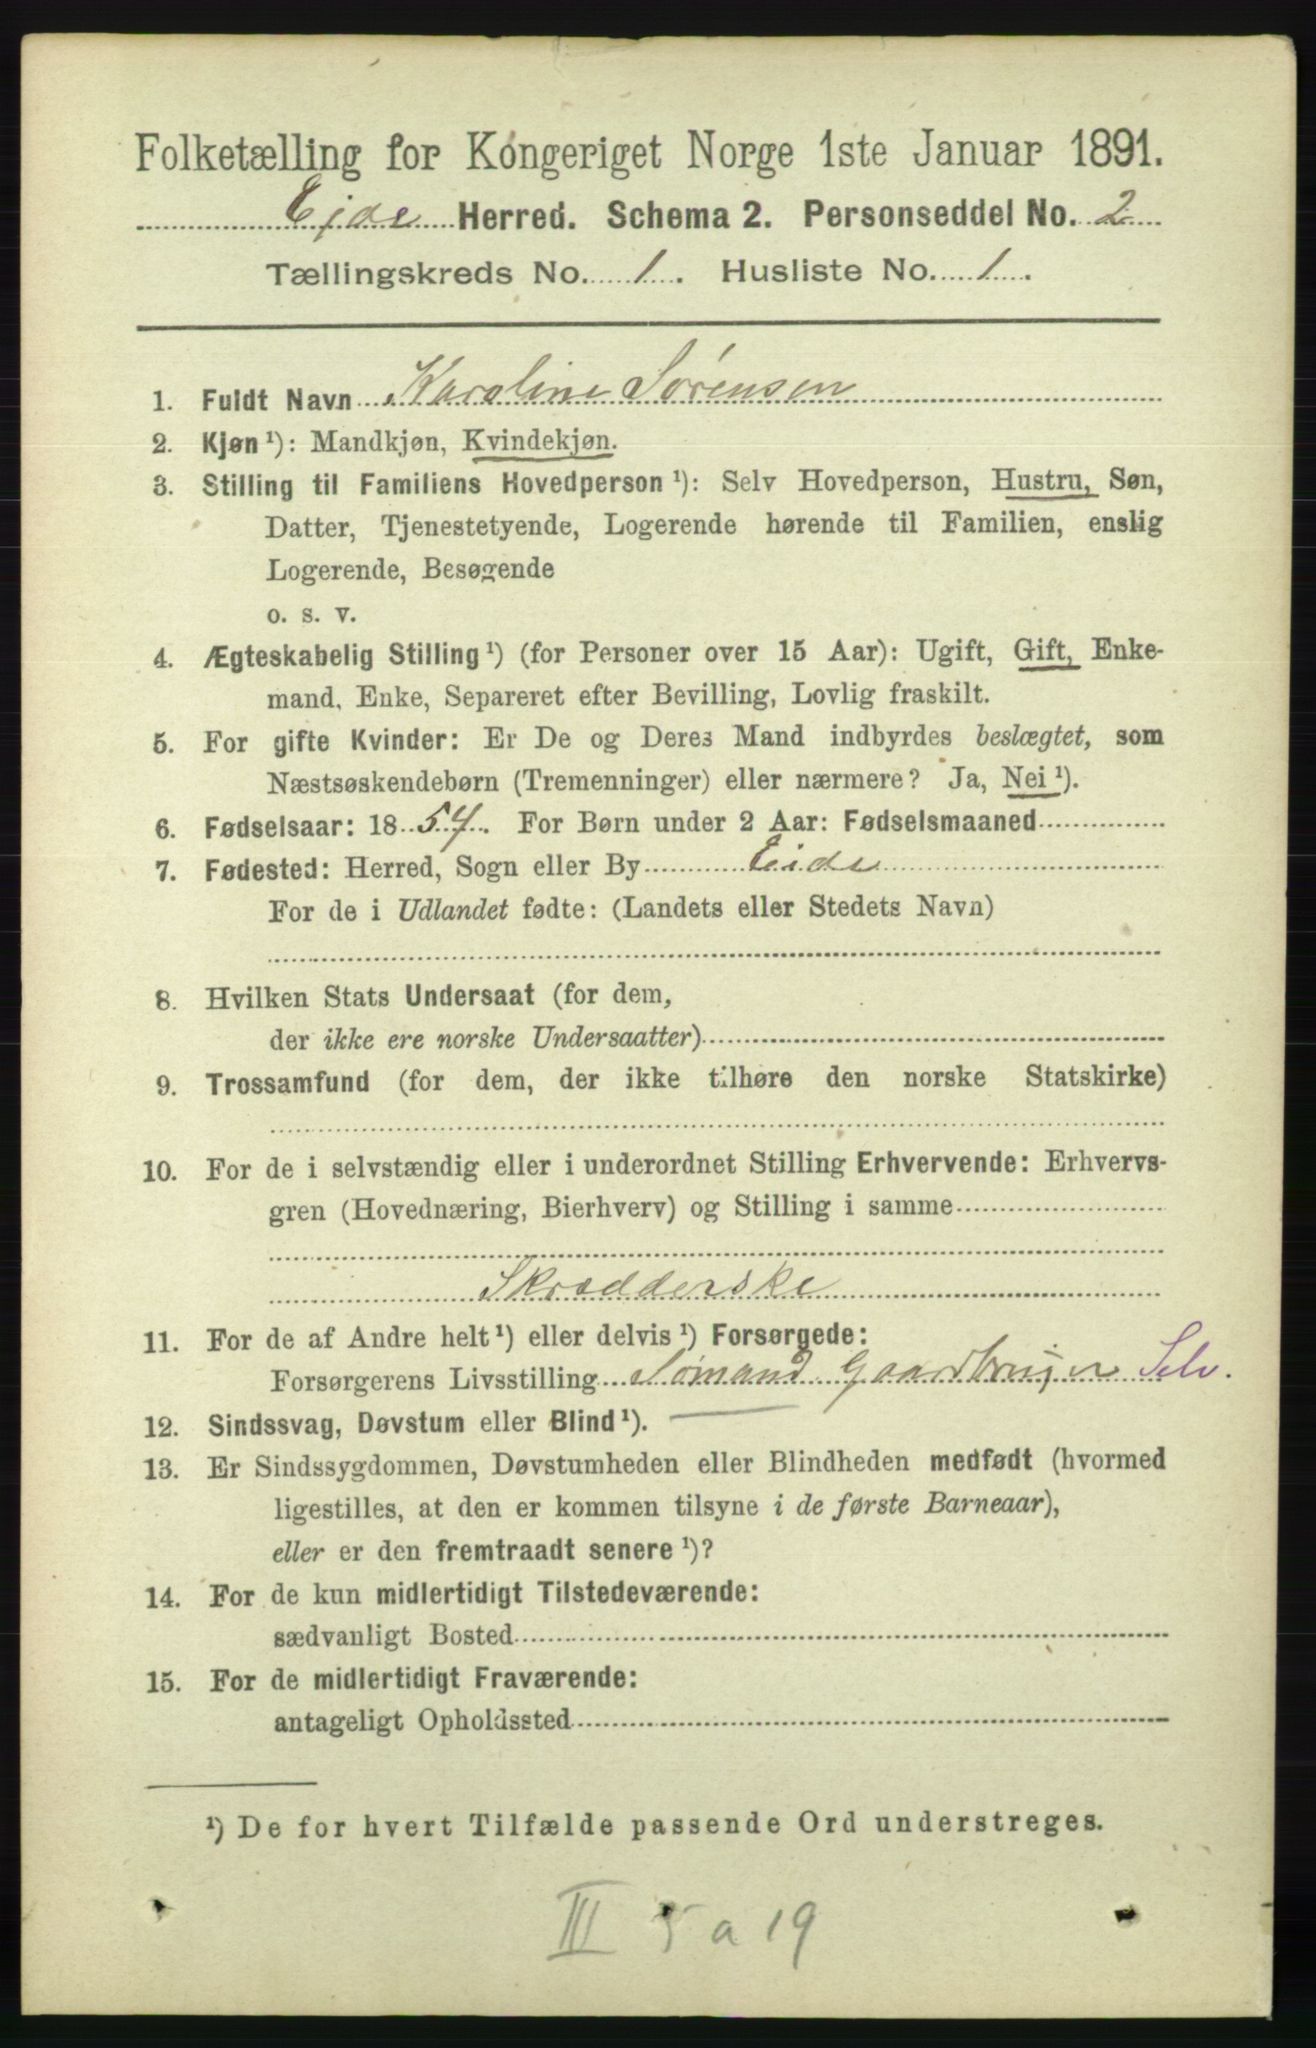 Folketælling for Kongeriget Norge 1ste Januar 1891.
Ejde Herred. Schema 2. Personseddel No. 2
Tællingskreds No. 1. Husliste No. 1.
1. Fuldt Navn Karoline Sørensen
2. Kjøn ¹): Mandkjøn, Kvindekjøn.
3. Stilling til Familiens Hovedperson ¹): Selv Hovedperson, Hustru, Søn,
Datter, Tjenestetyende, Logerende hørende til Familien, enslig
Logerende, Besøgende
o. s. v.
4. Ægteskabelig Stilling ¹) (for Personer over 15 Aar): Ugift, Gift, Enke-
mand, Enke, Separeret efter Bevilling, Lovlig fraskilt.
5. For gifte Kvinder: Er De og Deres Mand indbyrdes beslægtet, som
Næstsøskendebørn (Tremenninger) eller nærmere? Ja, Nei ¹).
6. Fødselsaar: 1854. For Børn under 2 Aar: Fødselsmaaned
7. Fødested: Herred, Sogn eller By Eide
For de i Udlandet fødte: (Landets eller Stedets Navn)
8. Hvilken Stats Undersaat (for dem,
der ikke ere norske Undersaatter)
9. Trossamfund (for dem, der ikke tilhøre den norske Statskirke)
10. For de i selvstændig eller i underordnet Stilling Erhvervende: Erhvervs-
gren (Hovednæring, Bierhverv) og Stilling i samme
Skrædderske
11. For de af Andre helt ¹) eller delvis ¹) Forsørgede:
Forsørgerens Livsstilling Sømand Gaardbruger Selv.
12. Sindssvag, Døvstum eller Blind ¹).
13. Er Sindssygdommen, Døvstumheden eller Blindheden medfødt (hvormed
ligestilles, at den er kommen tilsyne i de første Barneaar),
eller er den fremtraadt senere ¹)?
14. For de kun midlertidigt Tilstedeværende:
sædvanligt Bosted
15. For de midlertidigt Fraværende:
antageligt Opholdssted
¹) De for hvert Tilfælde passende Ord understreges.
III 5 a 19